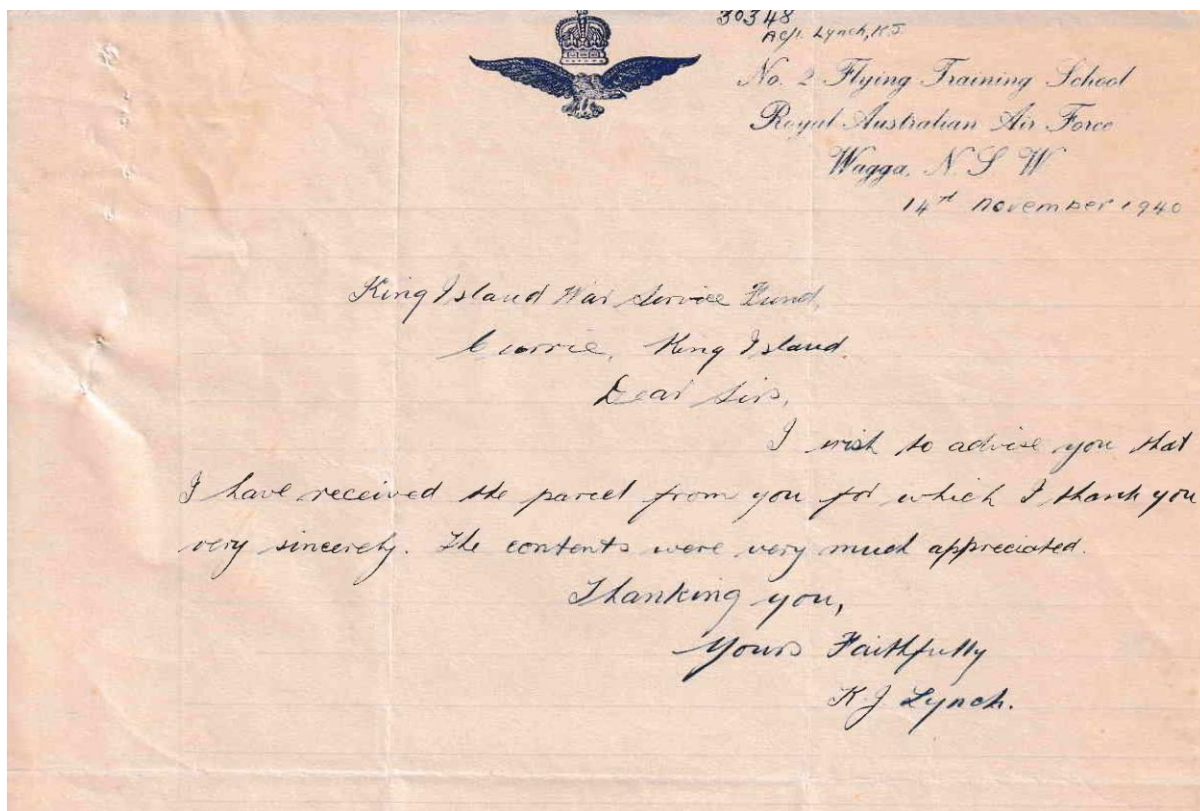 30348
Ac/1. Lynch, K.J.
No. 2 Flying Training School
Royal Australian Air Force
Wagga, N. S. W
14th November 1940
King Island War Service Fund,
Currie, King Island.
Dear Sirs,
I wish to advise you that
I have received the parcel from you for which I thank you
very sincerely. The contents were very much appreciated.
Thanking you,
Yours Faithfully
K J Lynch.